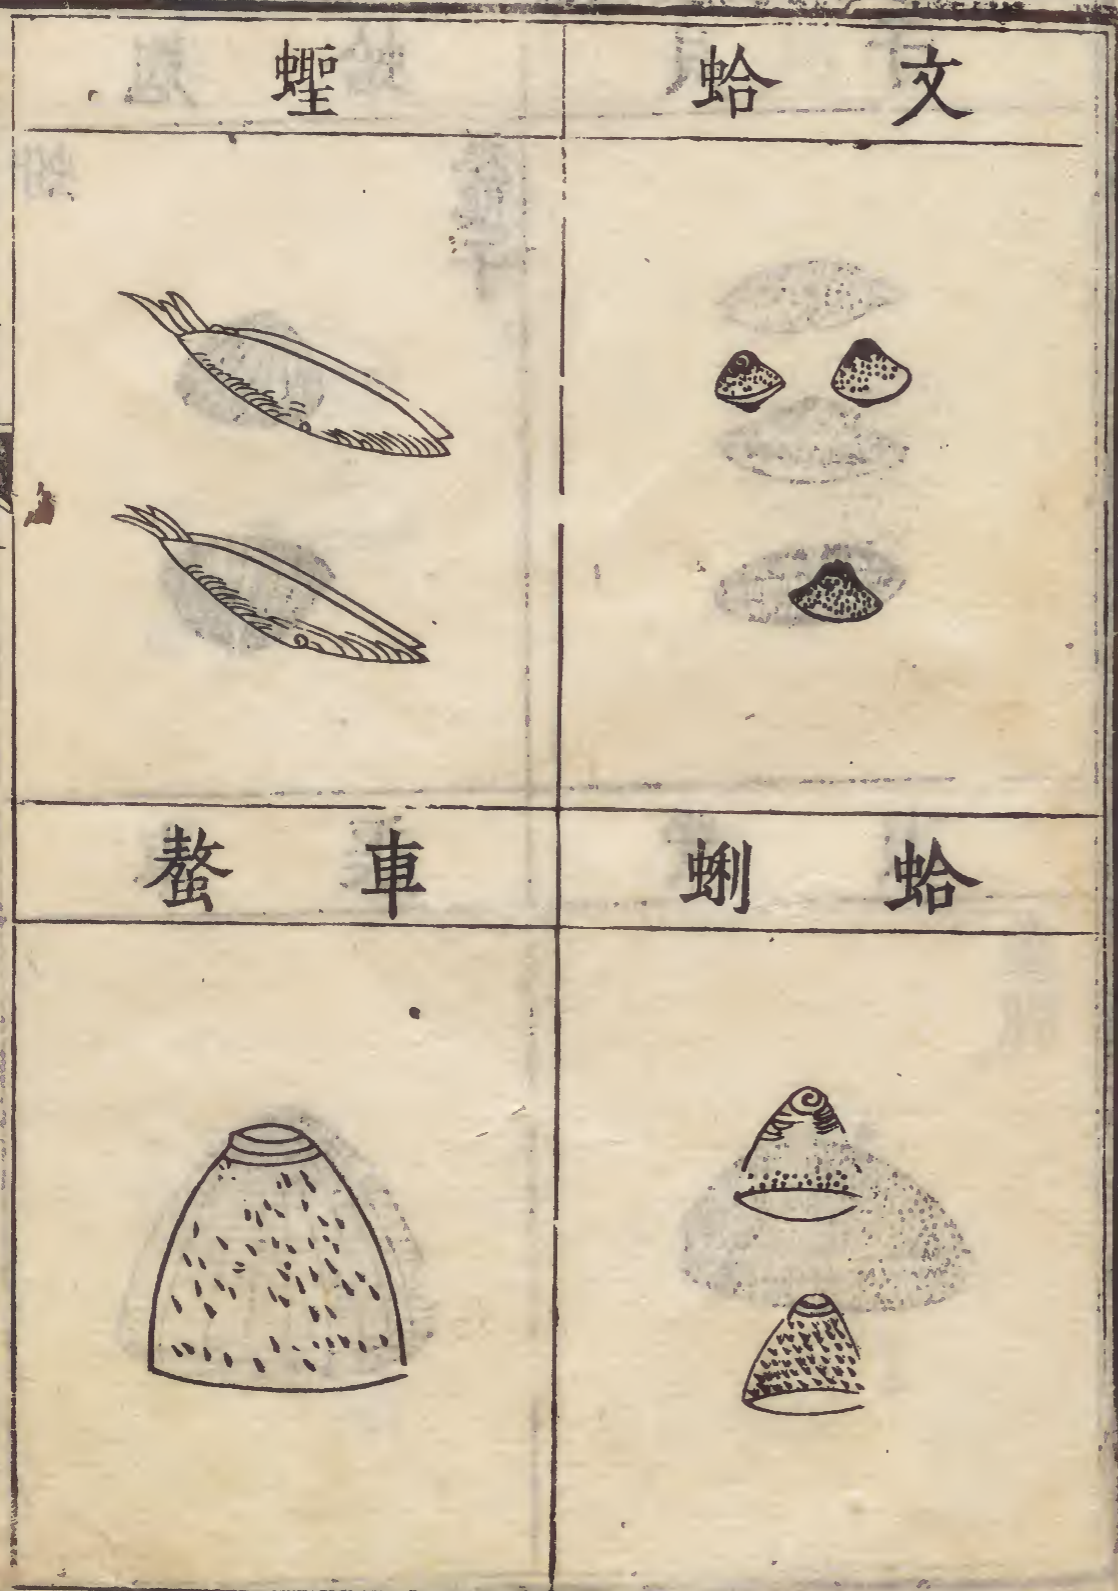 文蛤
蟶
蛤蜊
車螯